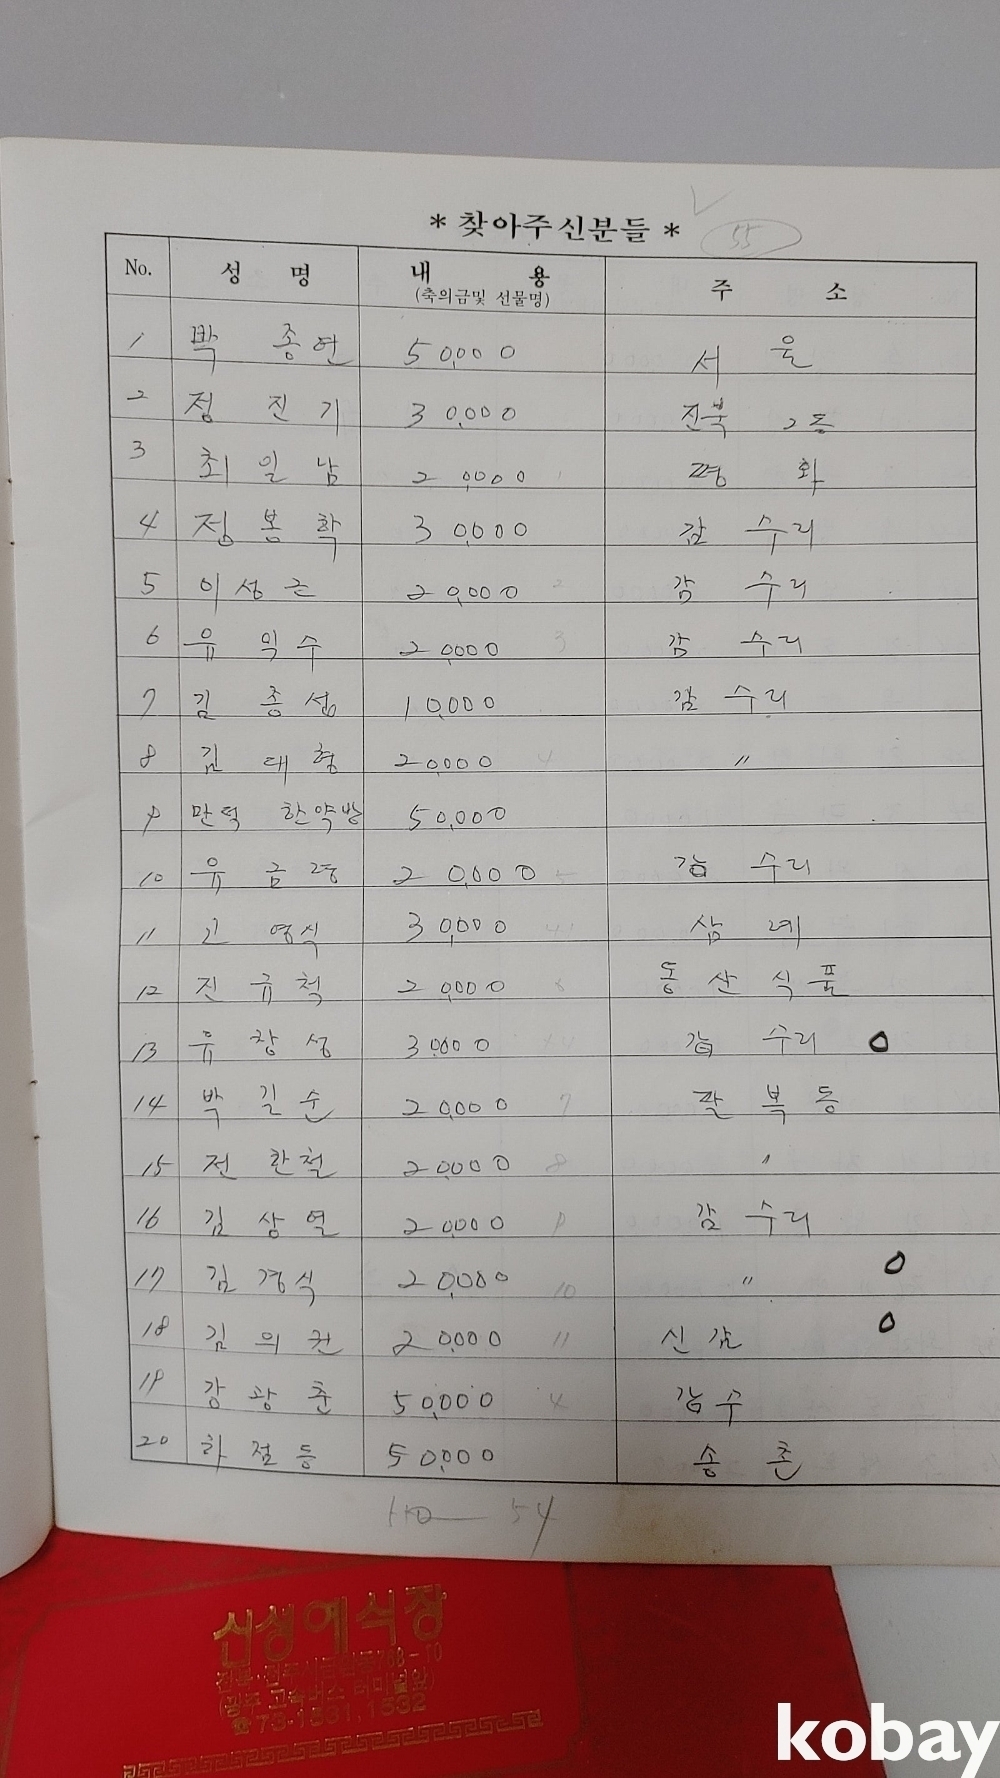 * 찾아주신분들 *
55
No. 성 명 내 용 주 소
(축의금및 선물명)
1 박 종연 50,000 서 울
2 정 진 기 30,000 진북 2동
3 최 일 남 20,000 평 화
4 정 봉 학 30,000 감 수리
5 이 성 근 20,000 감 수리
6 유 익 수 20,000 감 수리
7 김 종 섭 10,000 감 수리
8 김 대 형 20,000 〃
9 만덕 한약방 50,000
10 유 금 20,000 감 수리
11 고 영식 30,000 삼 례
12 진 규 척 20,000 동 산 식 품
13 유 창 성 30,000 감 수리 0
14 박 길 순 20,000 팔 복 동
15 전 환 철 20,000 〃
16 김 상 열 20,000 감 수리
17 김 경식 20,000 〃 0
18 김 의 권 20,000 신 감 0
19 강 광 춘 50,000 감 수
20 하 점 등 50,000 송 촌
54
신생예식장
(광주 고속버스 터미널앞)
☎ 73-1531, 1532
kobay